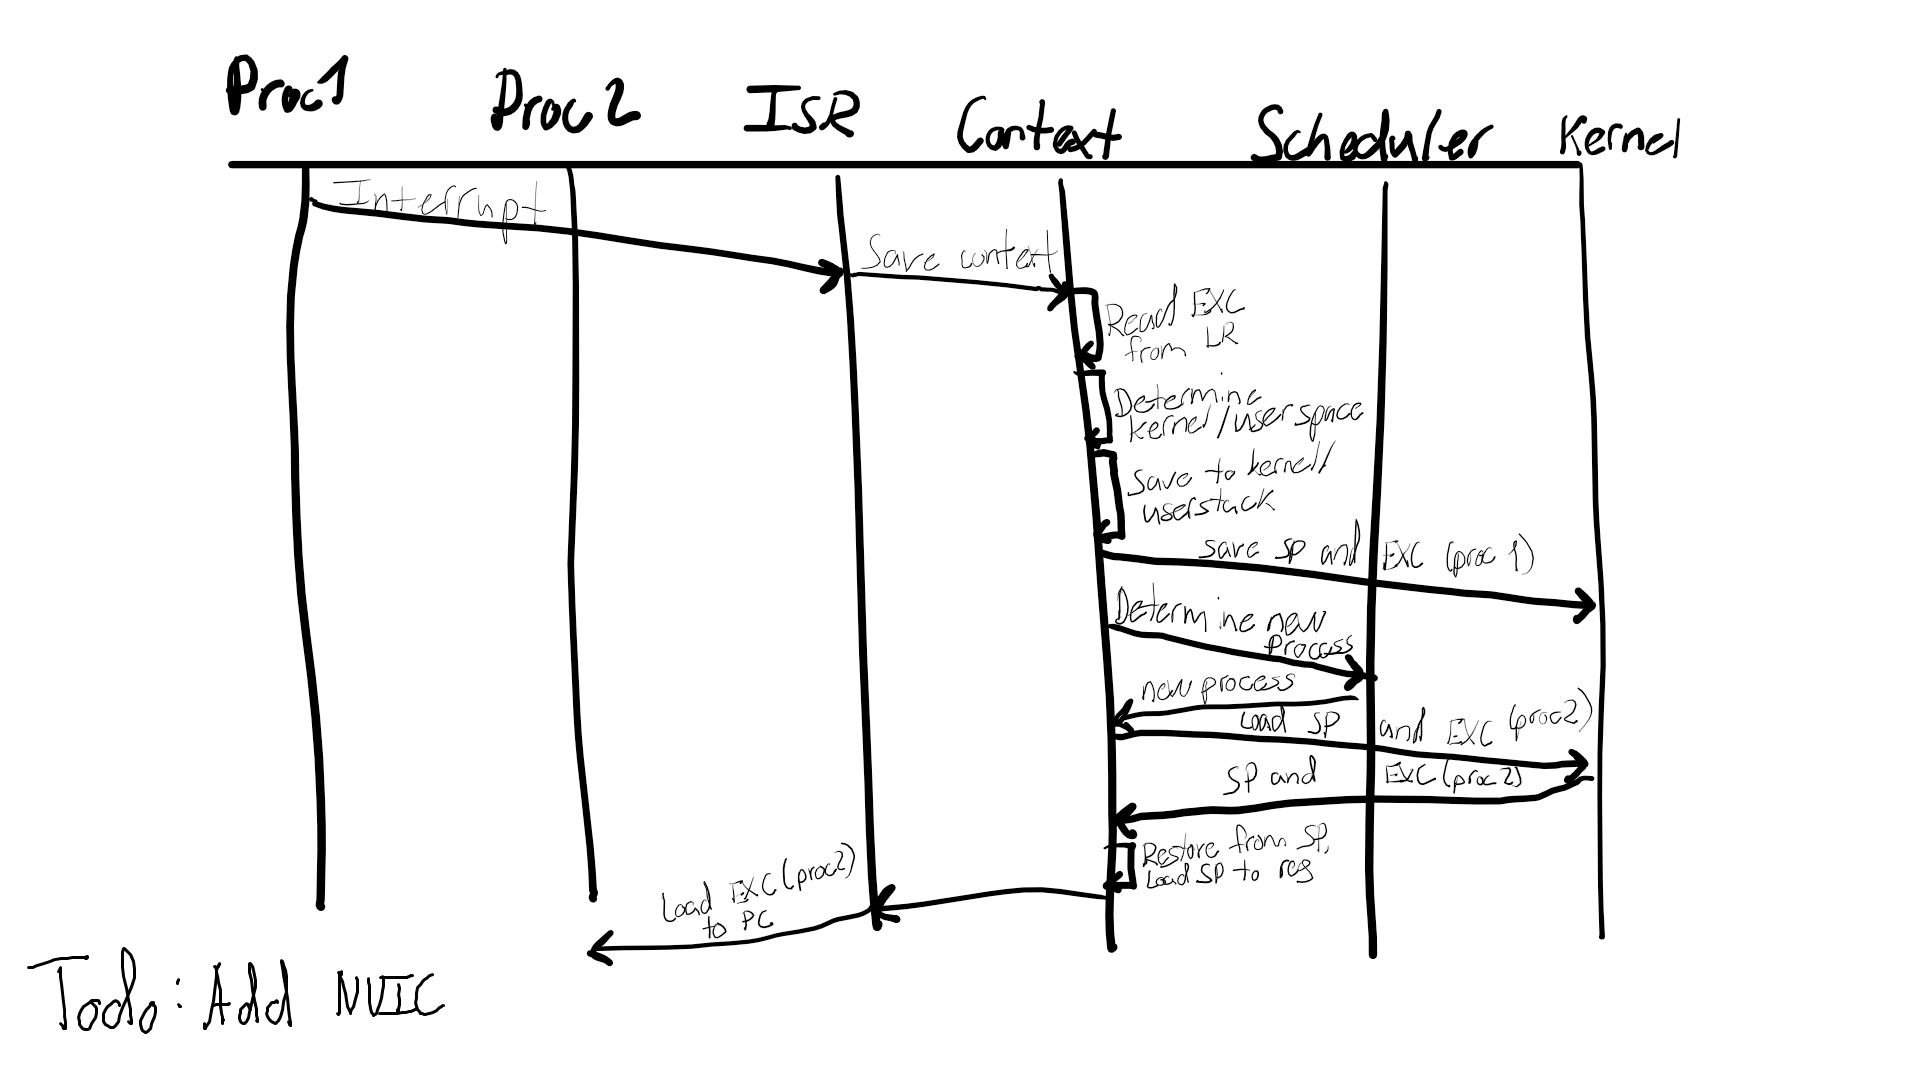 Proc1 Proc2 ISR Context Scheduler Kernel
Interrupt
Save context
Read EXC
from LR
Determine
kernel/userspace
Save to kernel/
userstack
save SP and EXC (proc 1)
Determine new
Process
new process
Load SP and EXC (proc2)
SP and EXC (proc2)
Restore from SP,
Load SP to reg
Load EXC (proc2)
to PC
Todo: Add NVIC